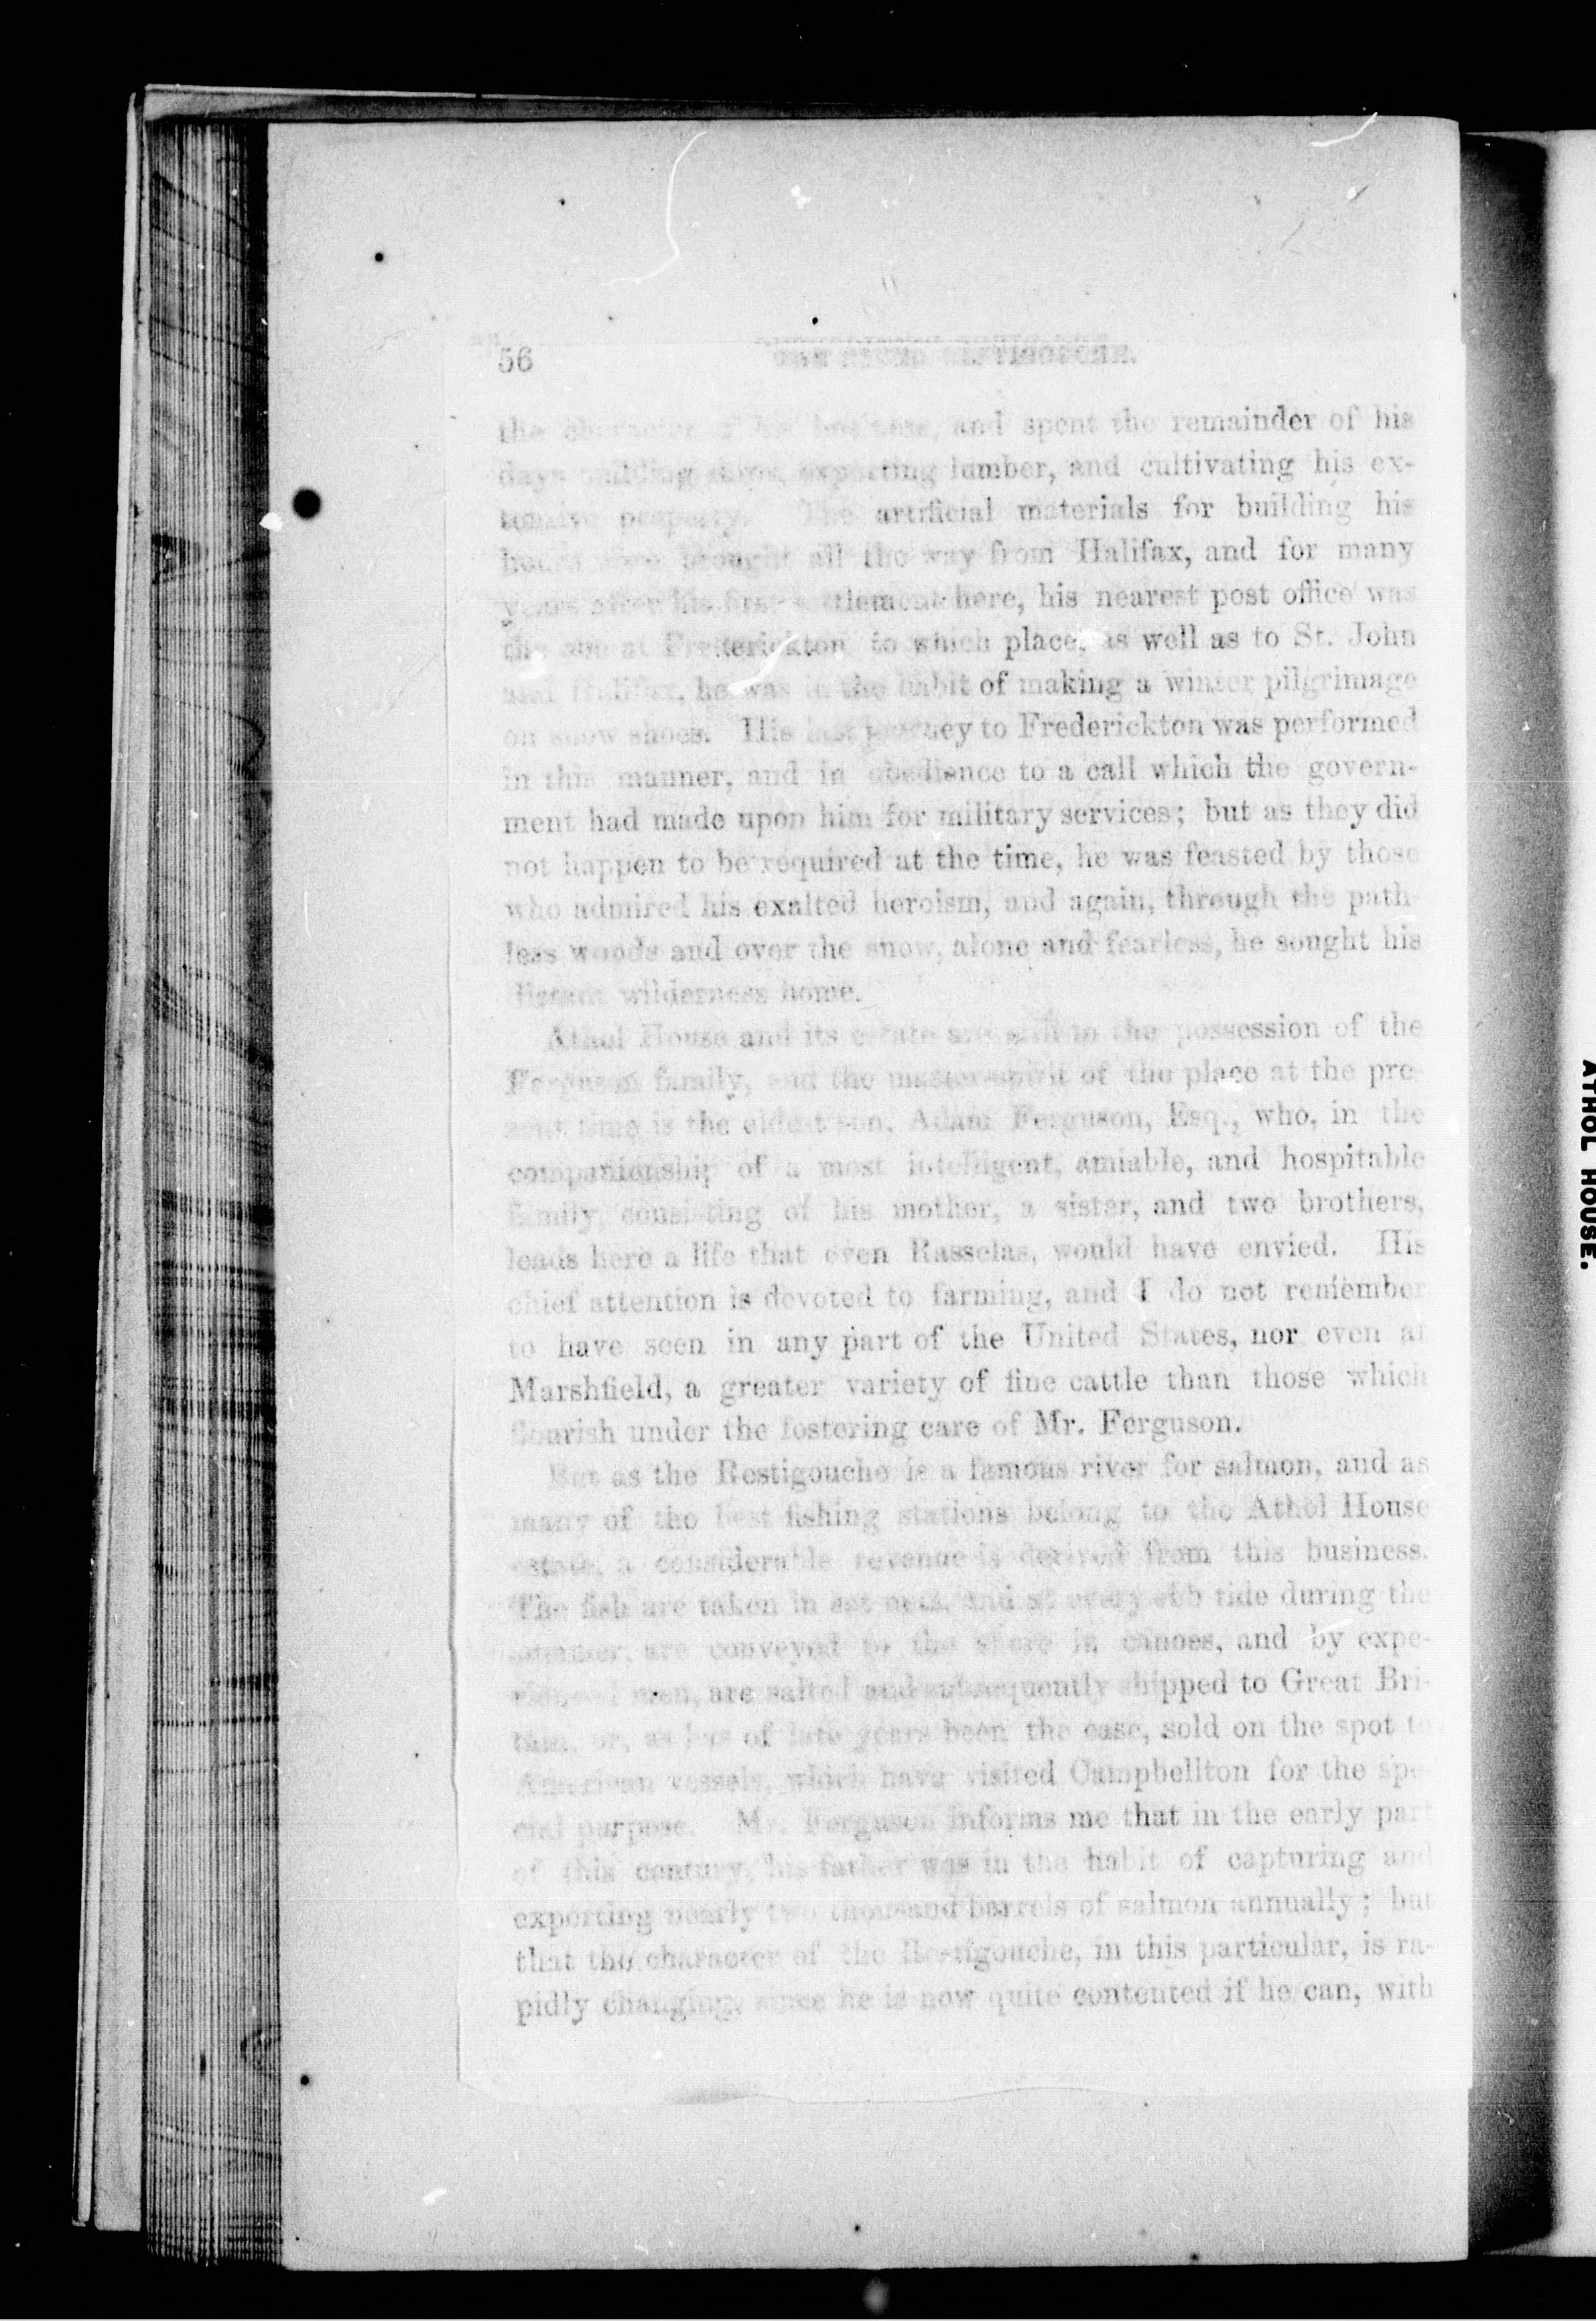 56
the character of his business, and spent the remainder of his
days building ships, exporting lumber, and cultivating his ex-
tensive property. The artificial materials for building his
house were brought all the way from Halifax, and for many
years after his first settlement here, his nearest post office was
the one at Frederickton to which place, as well as to St. John
and Halifax, he was in the habit of making a winter pilgrimage
on snow shoes. His last journey to Frederickton was performed
in this manner, and in obedience to a call which the govern-
ment had made upon him for military services; but as they did
not happen to be required at the time, he was feasted by those
who admired his exalted heroism, and again, through the path-
less woods and over the snow, alone and fearless, he sought his
distant wilderness home.
Athol House and its estate are still in the possession of the
Ferguson family, and the master-spirit of the place at the pre-
sent time is the eldest son, Adam Ferguson, Esq., who, in the
companionship of a most intelligent, amiable, and hospitable
family, consisting of his mother, a sister, and two brothers,
leads here a life that even Rasselas, would have envied. His
chief attention is devoted to farming, and I do not remember
to have seen in any part of the United States, nor even at
Marshfield, a greater variety of fine cattle than those which
flourish under the fostering care of Mr. Ferguson.
But as the Restigouche is a famous river for salmon, and as
many of the best fishing stations belong to the Athol House
estate, a considerable revenue is derived from this business.
The fish are taken in set nets, and at every ebb tide during the
summer, are conveyed to the shore in canoes, and by expe-
rienced men, are salted and subsequently shipped to Great Bri-
tain, or, as has of late years been the case, sold on the spot to
American vessels, which have visited Campbellton for the spe-
cial purpose. Mr. Ferguson informs me that in the early part
of this century, his father was in the habit of capturing and
exporting nearly two thousand barrels of salmon annually; but
that the character of the Restigouche, in this particular, is ra-
pidly changing, since he is now quite contented if he can, with
ATHOL HOUSE.